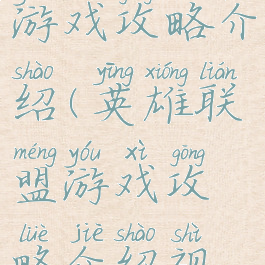 游戏攻略介
shào yīng xióng lián
绍(英雄联
méng yóu xì gōng
盟游戏攻
lüè jiè shào shì
略介绍视